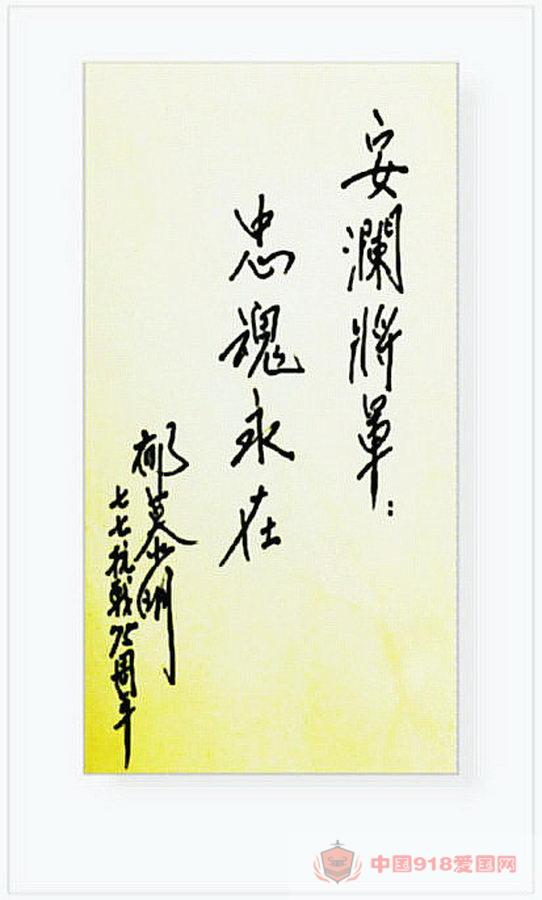 安瀾將軍:
忠魂永在
郁慕明
七七抗戰75周年
中国918爱国网